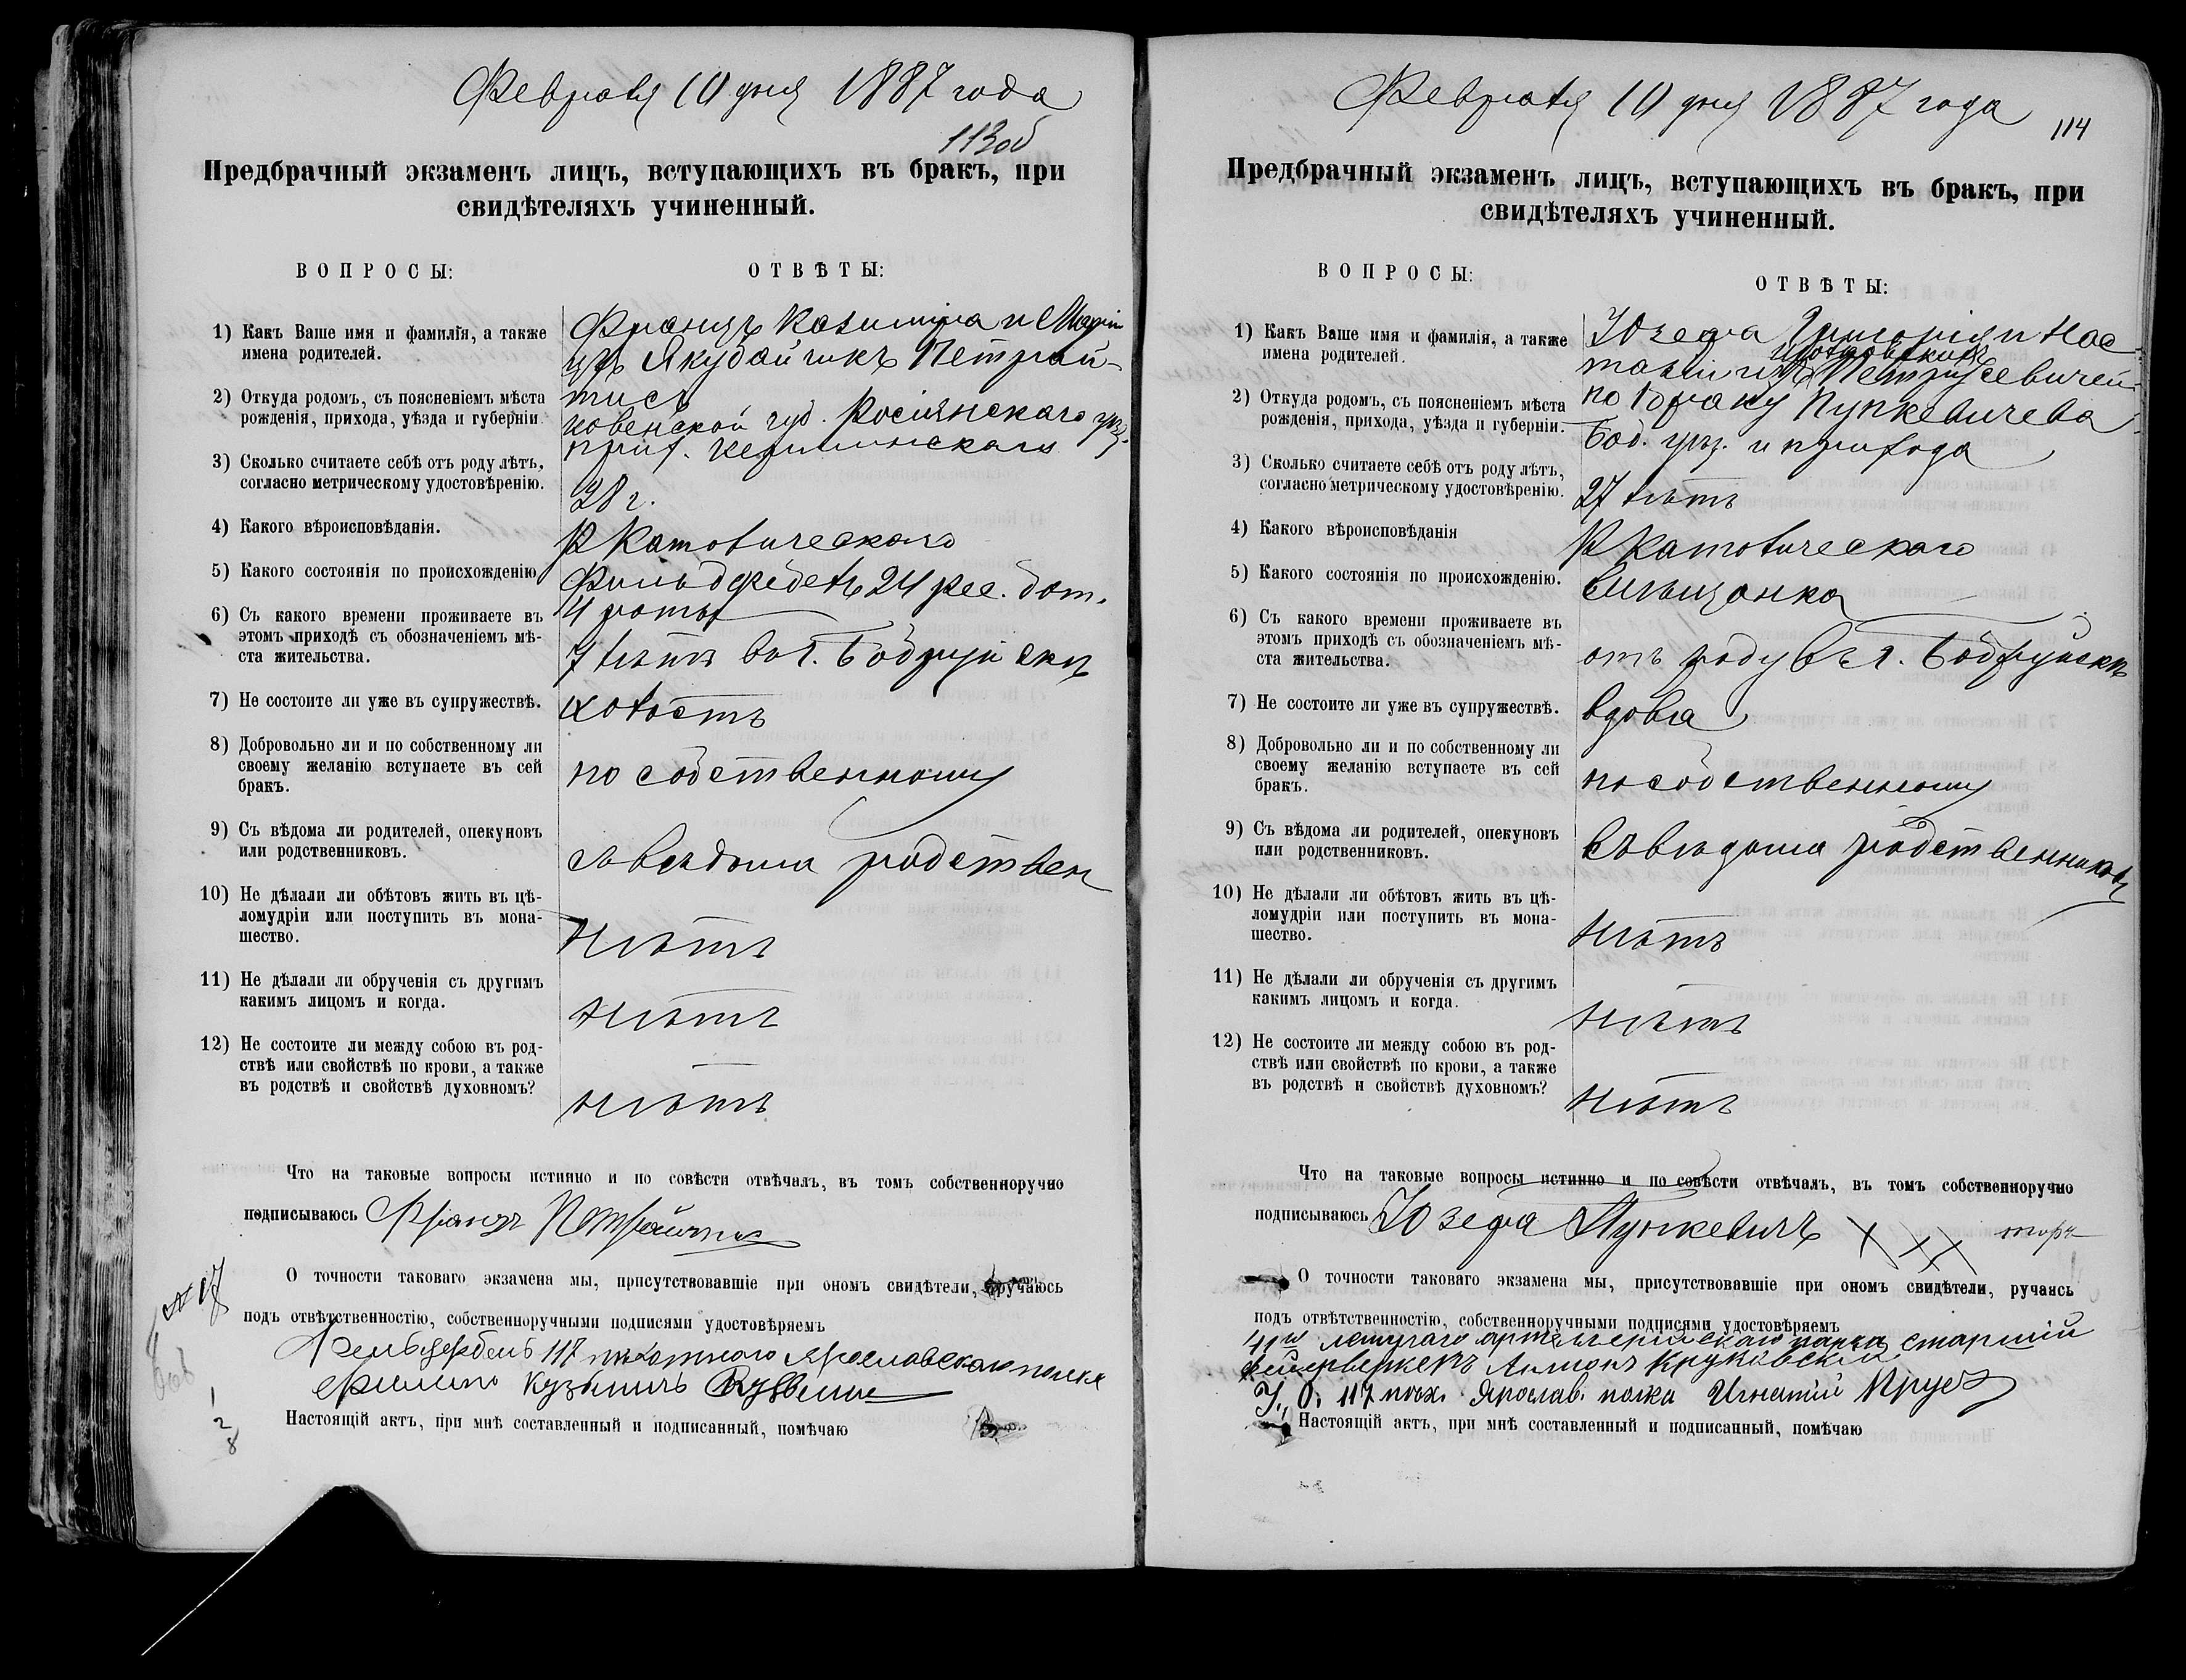 Февраля 10 дня 1887 года
113об
Предбрачный экзаменъ лицъ, вступающихъ въ бракъ, при
свидѣтеляхъ учиненный.
ВОПРОСЫ:
ОТВѢТЫ:
1) Какъ Ваше имя и фамилія, а также
имена родителей.
Францъ Казимира и Маріи
изъ Якубайчикъ Петрай-
тисъ
2) Откуда родомъ, съ поясненіемъ мѣста
рожденія, прихода, уѣзда и губерніи.
Ковенской губ. Росіянскаго уѣз.
прих.
3) Сколько считаете себѣ отъ роду лѣтъ,
согласно метрическому удостовѣренію.
28 г.
4) Какого вѣроисповѣданія.
Р Католическаго
5) Какого состоянія по происхожденію
Фильдфебель 24 рез. бат.
4 роты
6) Съ какого времени проживаете въ
этомъ приходѣ съ обозначеніемъ мѣ-
ста жительства.
7 лѣтъ въ г. Бобруйскѣ
7) Не состоите ли уже въ супружествѣ.
холостъ
8) Добровольно ли и по собственному ли
своему желанію вступаете въ сей
бракъ.
по собственному
9) Съ вѣдома ли родителей, опекуновъ
или родственниковъ.
съ вѣдома родствен
10) Не дѣлали ли обѣтовъ жить въ цѣ-
ломудріи или поступить въ мона-
шество.
нѣтъ
11) Не дѣлали ли обрученія съ другимъ
какимъ лицомъ и когда.
нѣтъ
12) Не состоите ли между собою въ род-
ствѣ или свойствѣ по крови, а также
въ родствѣ и свойствѣ духовномъ?
нѣтъ
Что на таковые вопросы истинно и по совѣсти отвѣчалъ, въ томъ собственноручно
подписываюсь Францъ Петрайтис
№ 17
О точности таковаго экзамена мы, присутствовавшіе при ономъ свидѣтели, ручаюсь
подъ отвѣтственностію, собственноручными подписями удостовѣряемъ
Фельдфебель 117 пѣхотнаго Ярославскаго полка
Филипъ Кузьмичъ
1
2
8
Настоящій актъ, при мнѣ составленный и подписанный, помѣчаю
Февраля 10 дня 1887 года
114
Предбрачный экзаменъ лицъ, вступающихъ въ бракъ, при
свидѣтеляхъ учиненный.
ВОПРОСЫ:
ОТВѢТЫ:
1) Какъ Ваше имя и фамилія, а также
имена родителей.
Юзефа Григорія и Нас-
тазіи изъ Петрусевичей
по 1 браку Пункевичева
2) Откуда родомъ, съ поясненіемъ мѣста
рожденія, прихода, уѣзда и губерніи.
Боб. уѣз. и прихода
3) Сколько считаете себѣ отъ роду лѣтъ,
согласно метрическому удостовѣренію.
27 лѣтъ
4) Какого вѣроисповѣданія
Р Католическаго
5) Какого состоянія по происхожденію.
6) Съ какого времени проживаете въ
этомъ приходѣ съ обозначеніемъ мѣ-
ста жительства.
отъ роду въ г. Бобруйскѣ
7) Не состоите ли уже въ супружествѣ.
вдова
8) Добровольно ли и по собственному ли
своему желанію вступаете въ сей
бракъ.
по собственному
9) Съ вѣдома ли родителей, опекуновъ
или родственниковъ.
съ вѣдома родственниковъ
10) Не дѣлали ли обѣтовъ жить въ цѣ-
ломудріи или поступить въ мона-
шество.
нѣтъ
11) Не дѣлали ли обрученія съ другимъ
какимъ лицомъ и когда.
нѣтъ
12) Не состоите ли между собою въ род-
ствѣ или свойствѣ по крови, а также
въ родствѣ и свойствѣ духовномъ?
нѣтъ
Что на таковые вопросы истинно и по совѣсти отвѣчалъ, въ томъ собственноручно
подписываюсь Юзефа Пункевичъ X X X
О точности таковаго экзамена мы, присутствовавшіе при ономъ свидѣтели, ручаясь
подъ отвѣтственностію, собственноручными подписями удостовѣряемъ
41го летучаго артилерійскаго парка старшій
фейерверкеръ Антонъ Круковскій
У. О. 117 пѣх. Ярослав. полка Игнатій
Настоящій актъ, при мнѣ составленный и подписанный, помѣчаю